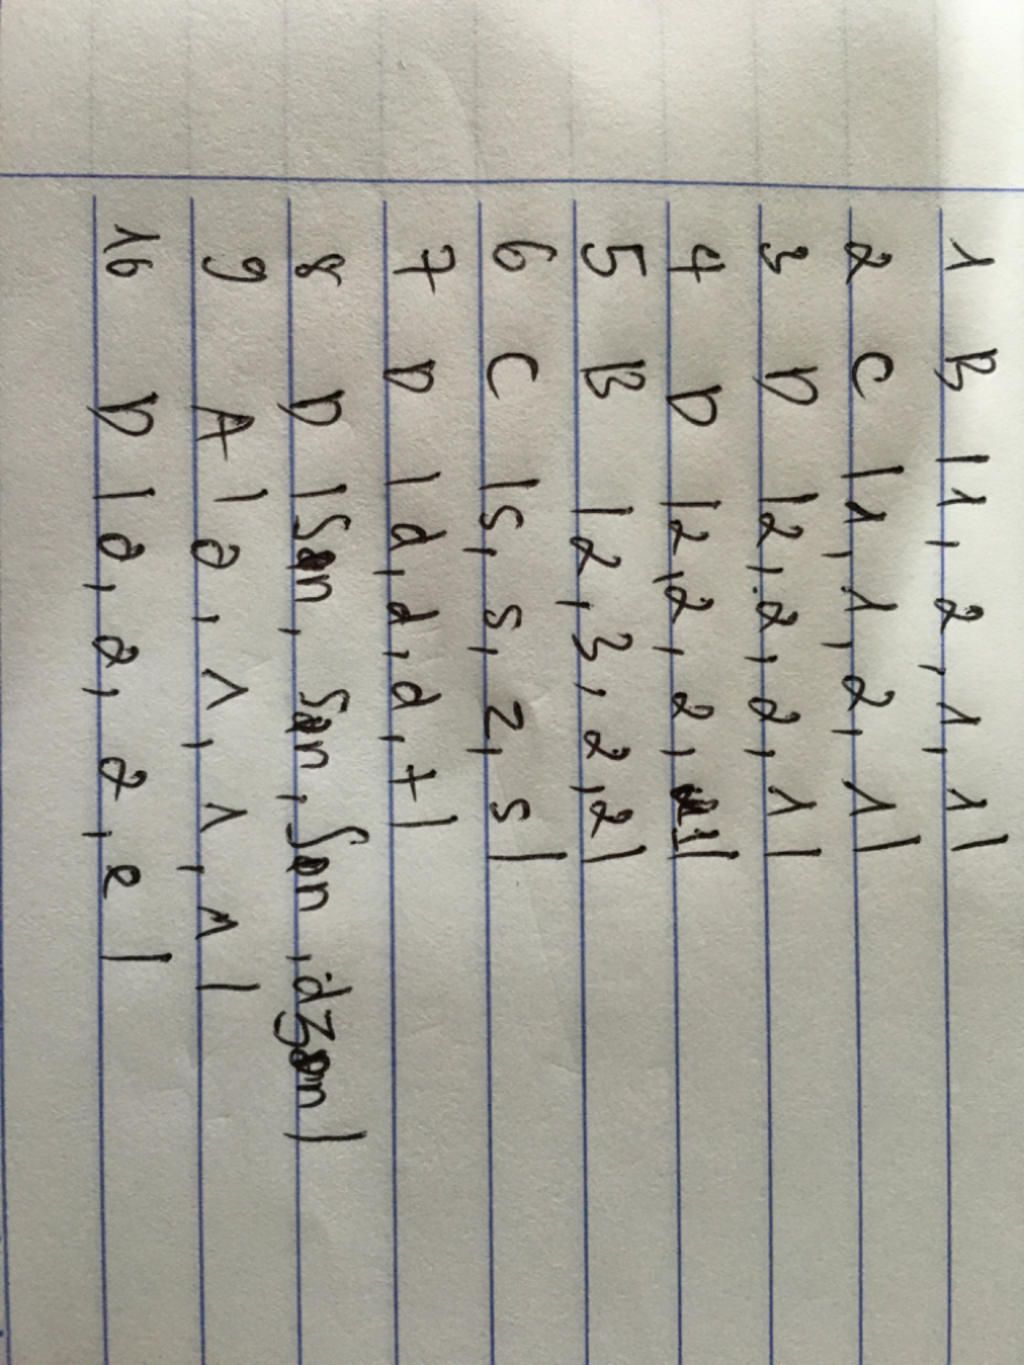 1 B |1, 2, 1, 1|
2 C |1, 1, 2, 1|
3 D |2, 2, 2, 1|
4 D |2, 2, 2, 1|
5 B |2, 3, 2, 2|
6 C |s, s, z, s|
7 D |d, d, d, t|
8 D |Sən, Sən, Sən, dʒən|
9 A |ə, ʌ, ʌ, ʌ|
10 D |ə, ə, ə, e|